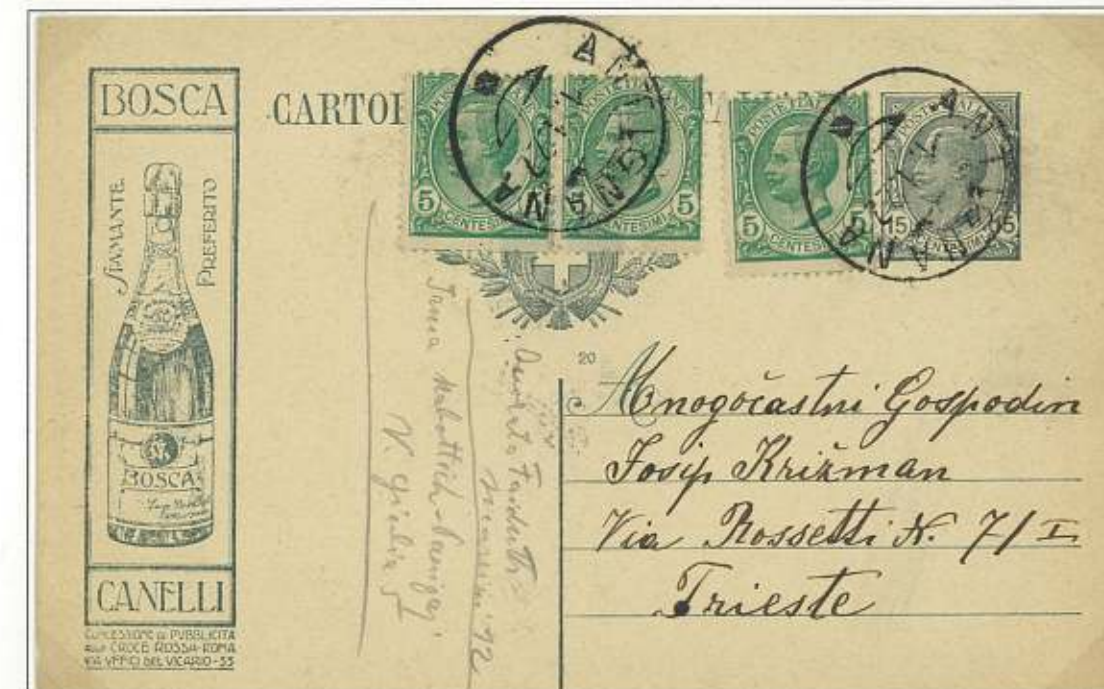 BOSCA
SPUMANTE
PREFERITO
BOSCA
CANELLI
CONCESSIONE DI PUBBLICITA
ALLA CROCE ROSSA-ROMA
VIA UFFICI DEL VICARIO-35
CARTOL
POSTE ITALIANE
5 CENTESIMI 5
POSTE ITALIANE
5 CENTESIMI 5
POSTE ITALIANE
5 CENTESIMI 5
POSTE ITALIANE
15 CENTESIMI 15
ANTIGNANA
ANTIGNANA
20
Mnogočastni Gospodin
Josip Križman
Via Rossetti N. 7/I
Trieste
V. Giulia 5